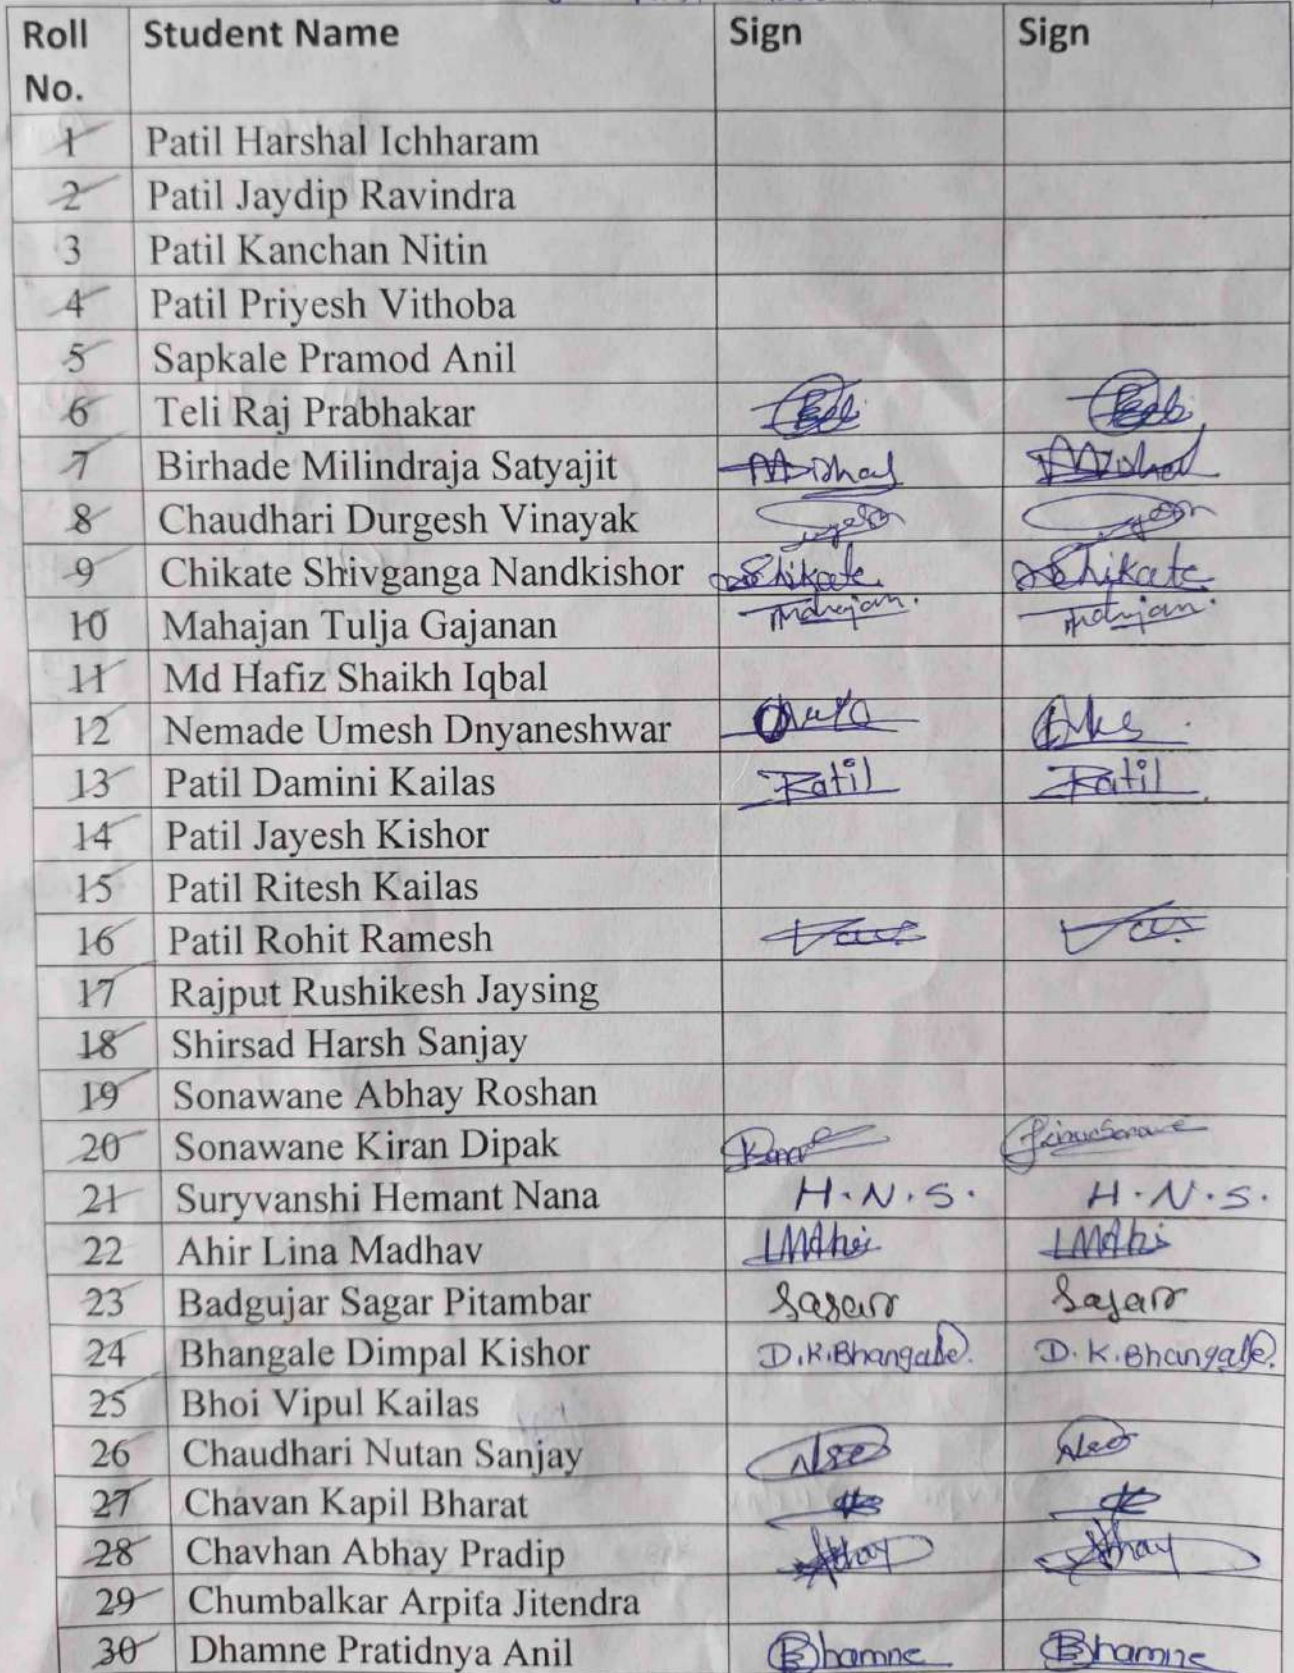 Roll No. Student Name Sign Sign
1 Patil Harshal Ichharam
2 Patil Jaydip Ravindra
3 Patil Kanchan Nitin
4 Patil Priyesh Vithoba
5 Sapkale Pramod Anil
6 Teli Raj Prabhakar
7 Birhade Milindraja Satyajit
8 Chaudhari Durgesh Vinayak
9 Chikate Shivganga Nandkishor Shikate Shikate
10 Mahajan Tulja Gajanan Mahajan. Mahajan.
11 Md Hafiz Shaikh Iqbal
12 Nemade Umesh Dnyaneshwar
13 Patil Damini Kailas Patil Patil
14 Patil Jayesh Kishor
15 Patil Ritesh Kailas
16 Patil Rohit Ramesh
17 Rajput Rushikesh Jaysing
18 Shirsad Harsh Sanjay
19 Sonawane Abhay Roshan
20 Sonawane Kiran Dipak
21 Suryvanshi Hemant Nana H.N.S. H.N.S.
22 Ahir Lina Madhav
23 Badgujar Sagar Pitambar Sagar Sagar
24 Bhangale Dimpal Kishor D.K.Bhangale. D.K.Bhangale.
25 Bhoi Vipul Kailas
26 Chaudhari Nutan Sanjay
27 Chavan Kapil Bharat
28 Chavhan Abhay Pradip Abhay Abhay
29 Chumbalkar Arpita Jitendra
30 Dhamne Pratidnya Anil Dhamne Dhamne